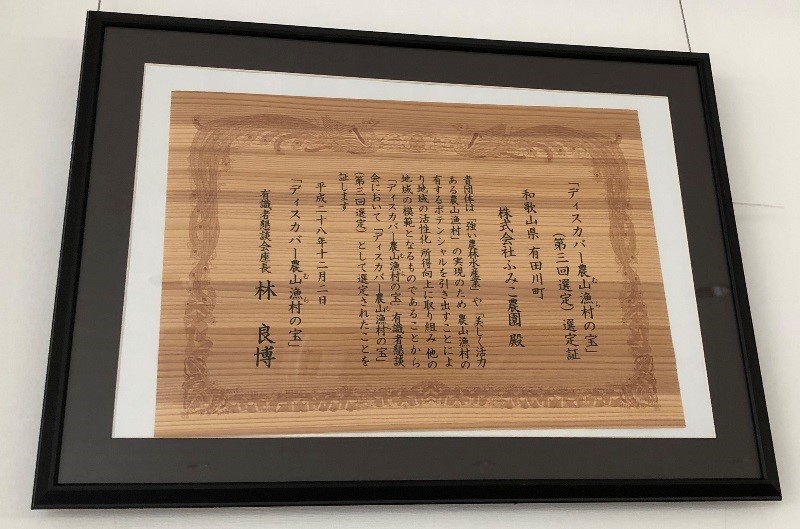 「ディスカバー農山漁村の宝」
むら
(第三回選定) 選定証
和歌山県 有田川町
株式会社ふみこ農園 殿
貴団体は「強い農林水産業」や「美しく活力
ある農山漁村」の実現のため 農山漁村の
有するポテンシャルを引き出すことによ
り地域の活性化 所得向上に取り組み 他の
地域の模範となるものであることから
「ディスカバー農山漁村の宝」有識者懇談
むら
会において「ディスカバー農山漁村の宝」
むら
(第三回選定)として選定されたことを
証します
平成二十八年十二月二日
「ディスカバー農山漁村の宝」
むら
有識者懇談会座長 林 良博